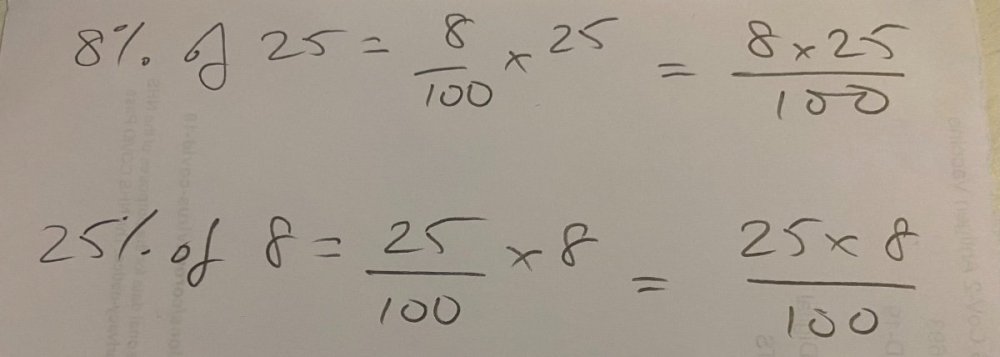 8% of 25 = 8/100 × 25 = 8×25/100
25% of 8 = 25/100 × 8 = 25×8/100